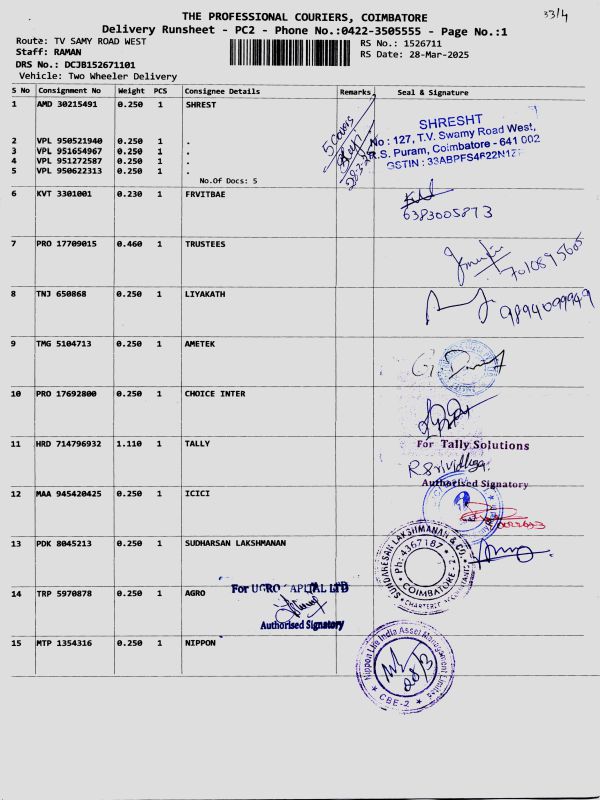 THE PROFESSIONAL COURIERS, COIMBATORE
33/4
Delivery Runsheet - PC2 - Phone No.:0422-3505555 - Page No.:1
Route: TV SAMY ROAD WEST
RS No.: 1526711
Staff: RAMAN
RS Date: 28-Mar-2025
DRS No.: DCJB152671101
Vehicle: Two Wheeler Delivery
S No Consignment No Weight PCS Consignee Details Remarks Seal & Signature
1 AMD 30215491 0.250 1 SHREST
5 Covers
28.3.25
SHRESHT
No : 127, T.V. Swamy Road West,
R.S. Puram, Coimbatore - 641 002
GSTIN : 33ABPFS4F22N1Z
2 VPL 950521940 0.250 1 .
3 VPL 951654967 0.250 1 .
4 VPL 951272587 0.250 1 .
5 VPL 950622313 0.250 1 .
No.Of Docs: 5
6 KVT 3301001 0.230 1 FRVITBAE
6383005873
7 PRO 17709015 0.460 1 TRUSTEES
7010895605
8 TNJ 650868 0.250 1 LIYAKATH
9894099949
9 TMG 5104713 0.250 1 AMETEK
10 PRO 17692800 0.250 1 CHOICE INTER
11 HRD 714796932 1.110 1 TALLY
For Tally Solutions
R Srividhya
Authorised Signatory
12 MAA 945420425 0.250 1 ICICI
13 PDK 8045213 0.250 1 SUDHARSAN LAKSHMANAN
SUNDARESAN LAKSHMANAN & CO.
Ph: 4367187
COIMBATORE - 2
CHARTERED ACCOUNTANTS
14 TRP 5970878 0.250 1 AGRO
For UGRO CAPITAL LTD
Authorised Signatory
15 MTP 1354316 0.250 1 NIPPON
Nippon Life India Asset Management Limited
28/3
CBE-2